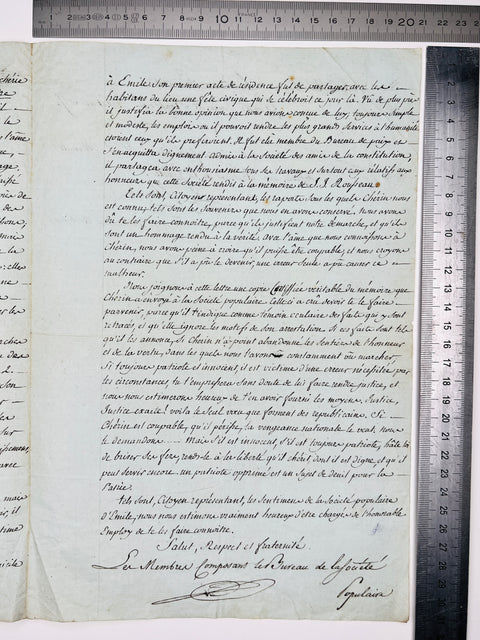 à Emile son premier acte de résidence fut de partager, avec les
habitans du lieu une fête civique qui se célébroit ce jour là. Vû de plus près
il justifia la bonne opinion que nous avions conçue de luy, toujours simple
et modeste, les emplois où il pouvoit rendre les plus grands services à l'humanité
étoient ceux qu'il préféroient. Il fut élu membre du Bureau de paix et
s'en acquitta dignement admis à la Société des amis de la constitution,
il partagea avec enthousiasme tous ses travaux et surtout ceux rélatifs aux
honneurs que cette Société rendit à la mémoire de J. J. Rousseau.
Tels sont, Citoyen représentant, les raports sous les quels Chérin nous
est connu, tels sont les souvenirs que nous en avons conservé. nous avons
dû te les faire connoître, parce qu'ils justifient notre démarche, et qu'ils
sont un hommage rendu à la vérité. avec l'ame que nous connoissons à
Chérin, nous avons peine à croire qu'il puisse être coupable, et nous croyons
au contraire que s'il a pû le devenir, une erreur seule a pû causer ce
malheur.
Nous joignons à cette lettre une copie Certifiée véritable du mémoire que
Chérin a envoyé à la Société populaire. Celle ci a crû devoir te le faire
parvenir, parce qu'il t'indique comme témoin oculaire des faits qui y sont
retracés, et qu'elle ignore les motifs de son arrestation. Si ces faits sont tels
qu'il les annonce, si Chérin n'a point abandonné les sentiers de l'honneur
et de la vertu, dans les quels nous l'avons constamment vû marcher,
Si toujours patriote et innocent, il est victime d'une erreur nécessitée par
les circonstances, tu t'empressera sans doute de lui faire rendre justice, et
nous nous estimerons heureux de t'en avoir fourni les moyens. Justice,
Justice exacte! voila le seul vœu que forment des républicains. Si
Chérin est coupable, qu'il périsse, la vengeance nationale le veut, nous
te demandons .... Mais s'il est innocent, s'il est toujours patriote, hâte toi
de briser ses fers, rends-le à la liberté qu'il chérit dont il est digne, et qu'il
peut servir encore. un patriote opprimé est un sujet de deuil pour la
Patrie.
tels sont, Citoyen représentant, les Sentimens de la Société populaire
d'Emile, nous nous estimons vraiment heureux d'être chargés de l'honorable
Employ de te les faire connoître.
Salut, Respect et fraternité.
Les Membres Composans le Bureau de la Société
Populaire